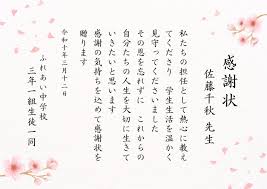 感謝状
佐藤千秋 先生
私たちの担任として熱心に教え
てくださり 学生生活を温かく
見守ってくださいました
その恩を忘れずに これからの
自分たちの人生を大切に生きて
いきたいと思います
感謝の気持ちを込めて感謝状を
贈ります
令和十年三月十二日
ふれあい中学校
三年一組生徒一同